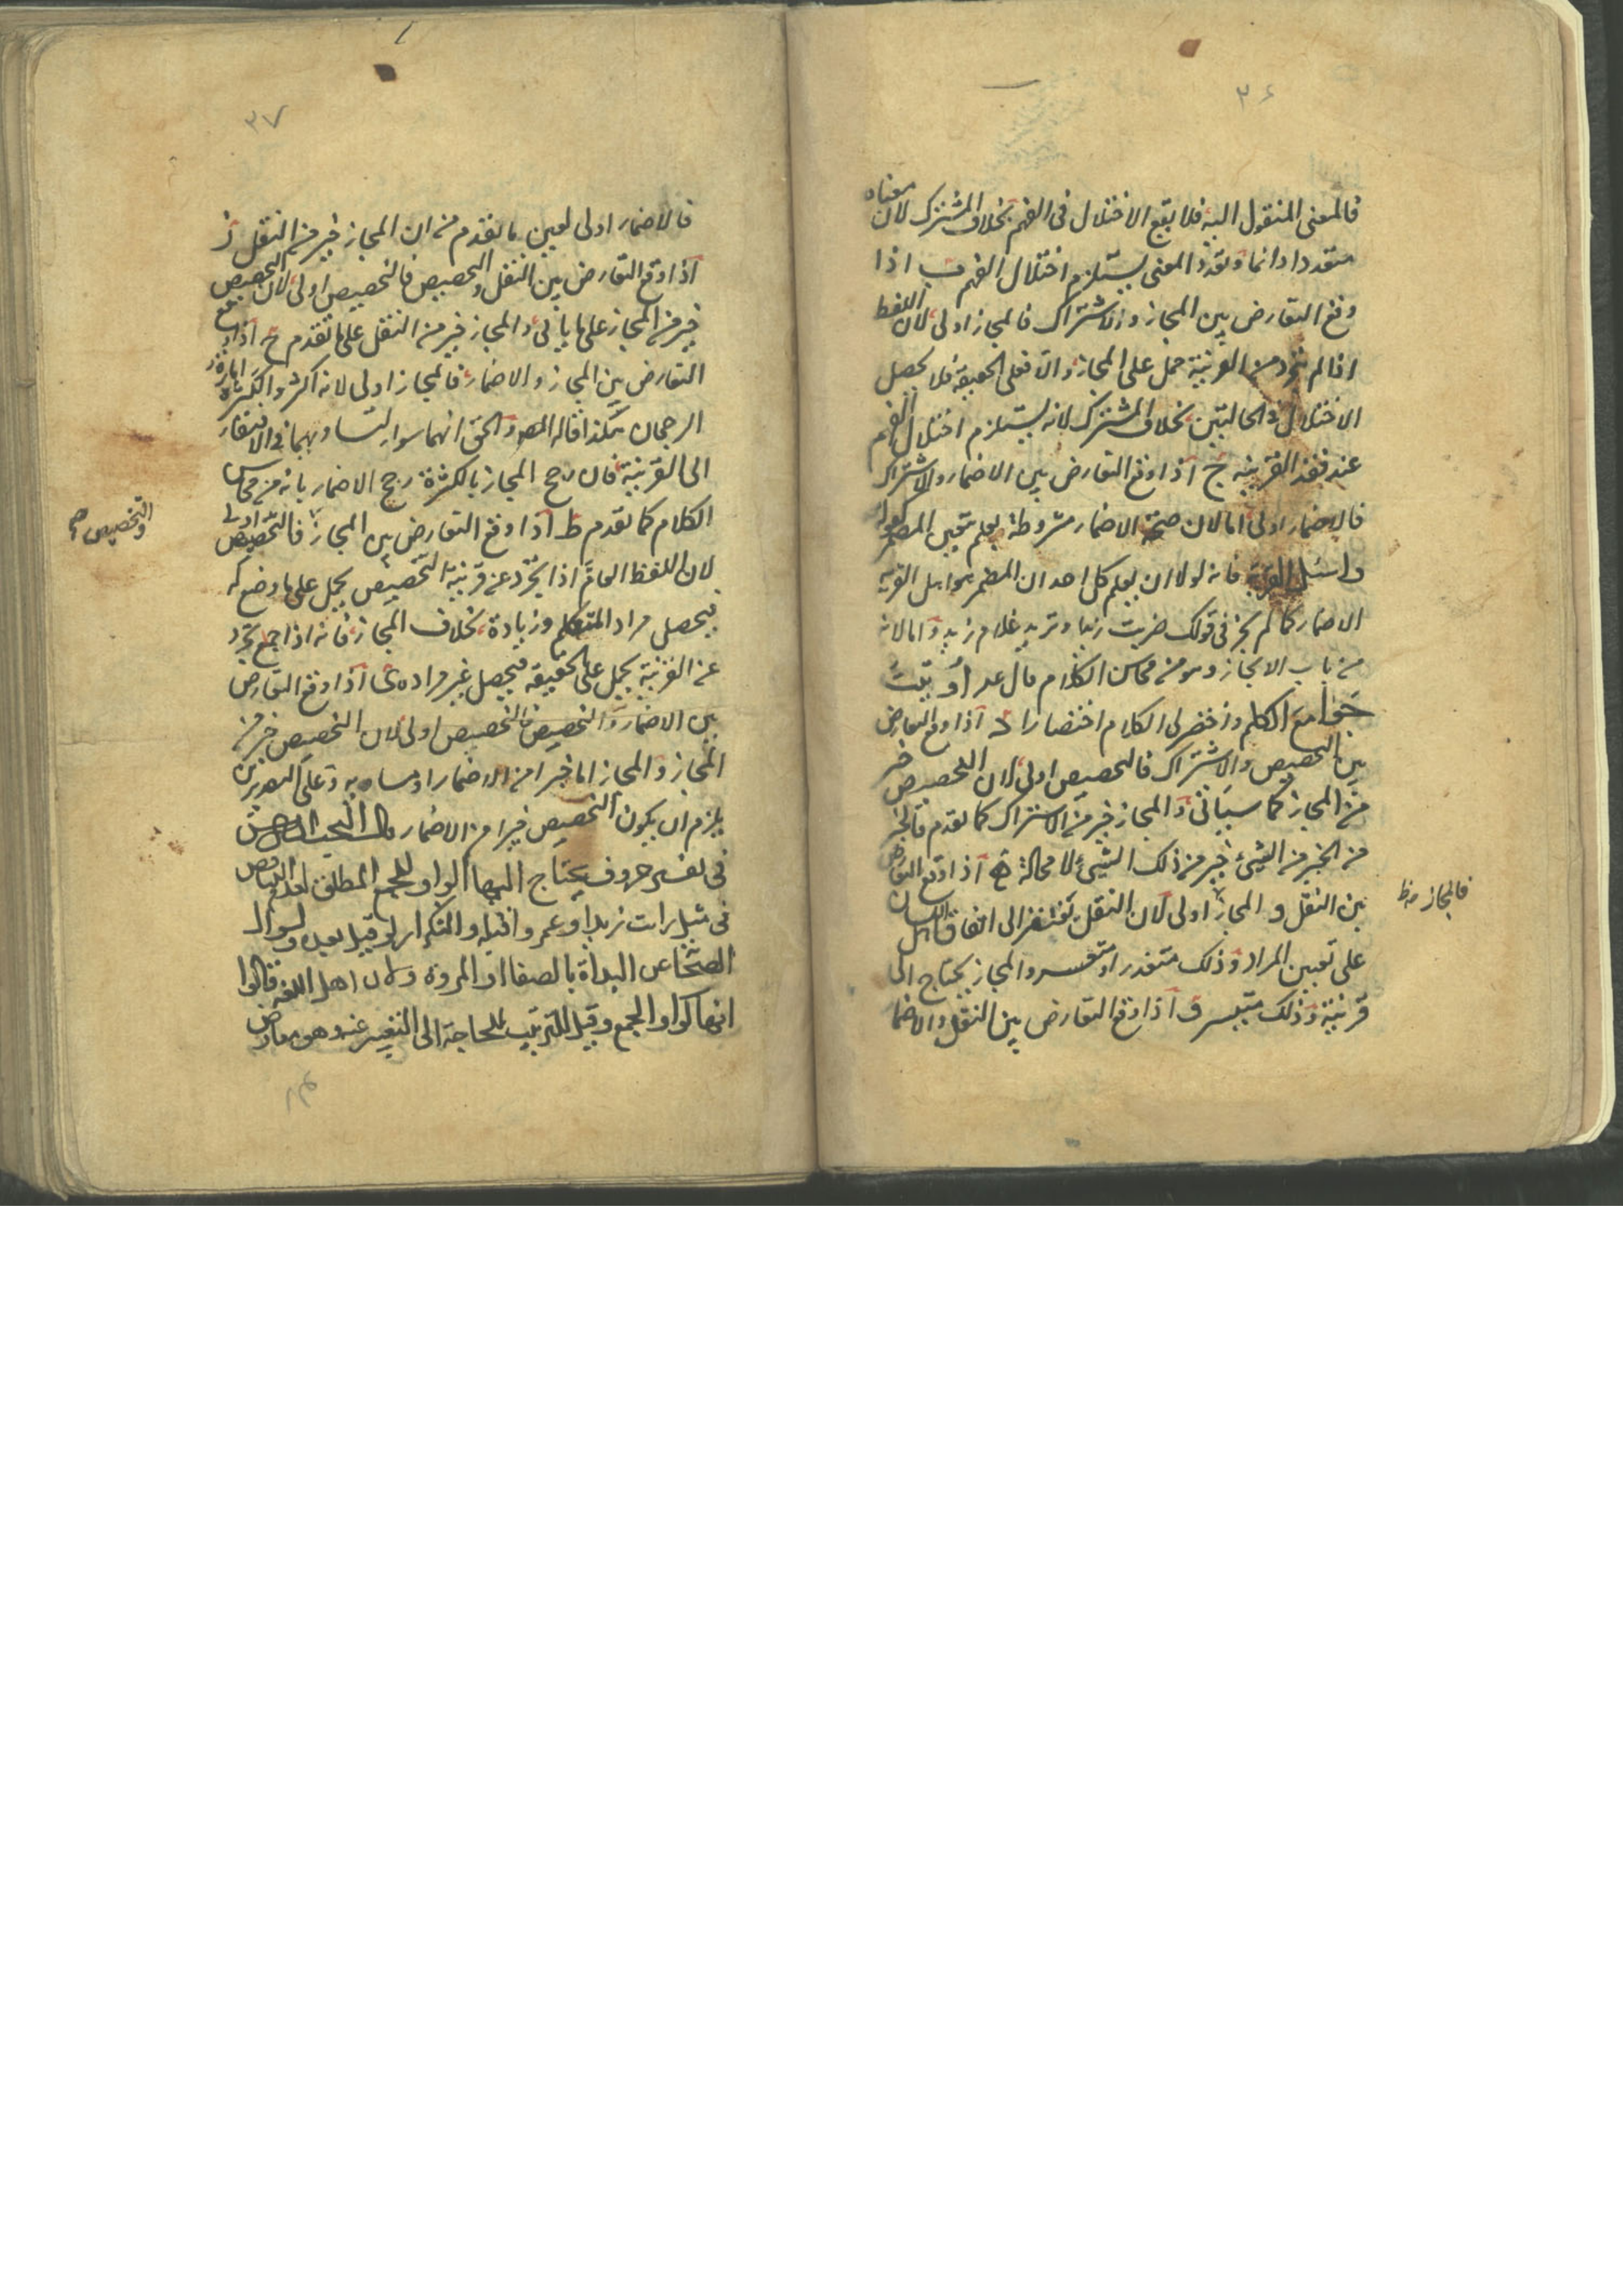 ٣٦
فالمعنى المنقول اليه فلا يقع الاختلال فى الفهم بخلاف المشترك لان معناه
متعددا دائما وتعدد المعنى يستلزم اختلال الفهم ب اذا
وقع التعارض بين المجاز والاشتراك فالمجاز اولى لان اللفظ
اذا لم يتجرد من القرينة حمل على المجاز والا فعلى الحقيقة فلا يحصل
الاختلال فى الحالتين بخلاف المشترك لانه يستلزم اختلال الفهم
عند فقد القرينه ج اذا وقع التعارض بين الاضمار والاشتراك
فالاضمار اولى اما لان صحة الاضمار مشروطة بعلم تعين المضمر كقوله
واسئل القرية فانه لولا ان يعلم كل احد ان المضمر هو اهل القرية
الاضمار كما لم يجز فى قولك ضربت زيدا وتريد غلام زيد واما لانه
من باب الايجاز وهو من محاسن الكلام قال اوتيت
جوامع الكلم واختصر لى الكلام اختصارا د اذا وقع التعارض
بين التخصيص والاشتراك فالتخصيص اولى لان التخصيص خير
من المجاز كما سياتى والمجاز خير من الاشتراك كما تقدم فالخير
من الخير من الشيئ خير من ذلك الشيئ لا محالة ه اذا وقع التعارض
بين النقل و المجاز اولى لان النقل يفتقر الى اتفاق اهل اللسان
فالمجاز
على تعيين المراد وذلك متعذر او متعسر والمجاز يحتاج الى
قرينة وذلك متيسر و اذا وقع التعارض بين النقل والاضما
٣٧
فالاضمار اولى لعين ما تقدم من ان المجاز خير من النقل ز
اذا وقع التعارض بين النقل والتخصيص فالتخصيص اولى لان التخصيص
خير من المجاز على ما ياتى والمجاز خير من النقل على ما تقدم ح اذا وقع
التعارض بين المجاز والاضمار فالمجاز اولى لانه اكثر والكثرة امارة
الرجحان هكذا قاله المصـ والحق انهما سواء لتساويهما فى الافتقار
الى القرينة فان رجح المجاز بالكثرة رجح الاضمار بانه من محاسن
الكلام كما تقدم ط اذا وقع التعارض بين المجاز فالتخصيص اولى
والتخصيص صح
لان اللفظ العام اذا تجرد عن قرينة التخصيص يحمل على ما وضع له
فيحصل مراد المتكلم وزيادة بخلاف المجاز فانه اذا تجرد
عن القرينة يحمل على الحقيقه فيحصل غير مراده ى اذا وقع التعارض
بين الاضمار والتخصيص فالتخصيص اولى لان التخصيص خير من
المجاز والمجاز اما خير من الاضمار او مساو به وعلى التقديرين
يلزم ان يكون التخصيص خيرا من الاضمار قال البحث الخامس
فى تفسير حروف يحتاج اليها الواو للجمع المطلق لعدم التناقض
فى مثل رايت زيدا وعمروا قبله والتكرار لو قيل بعده ولسوال
الصحابة عن البداة بالصفا او المروة ولان اهل اللغة قالوا
انها كواو الجمع وقيل للترتيب للحاجة الى التعبير عنه وهو معارض